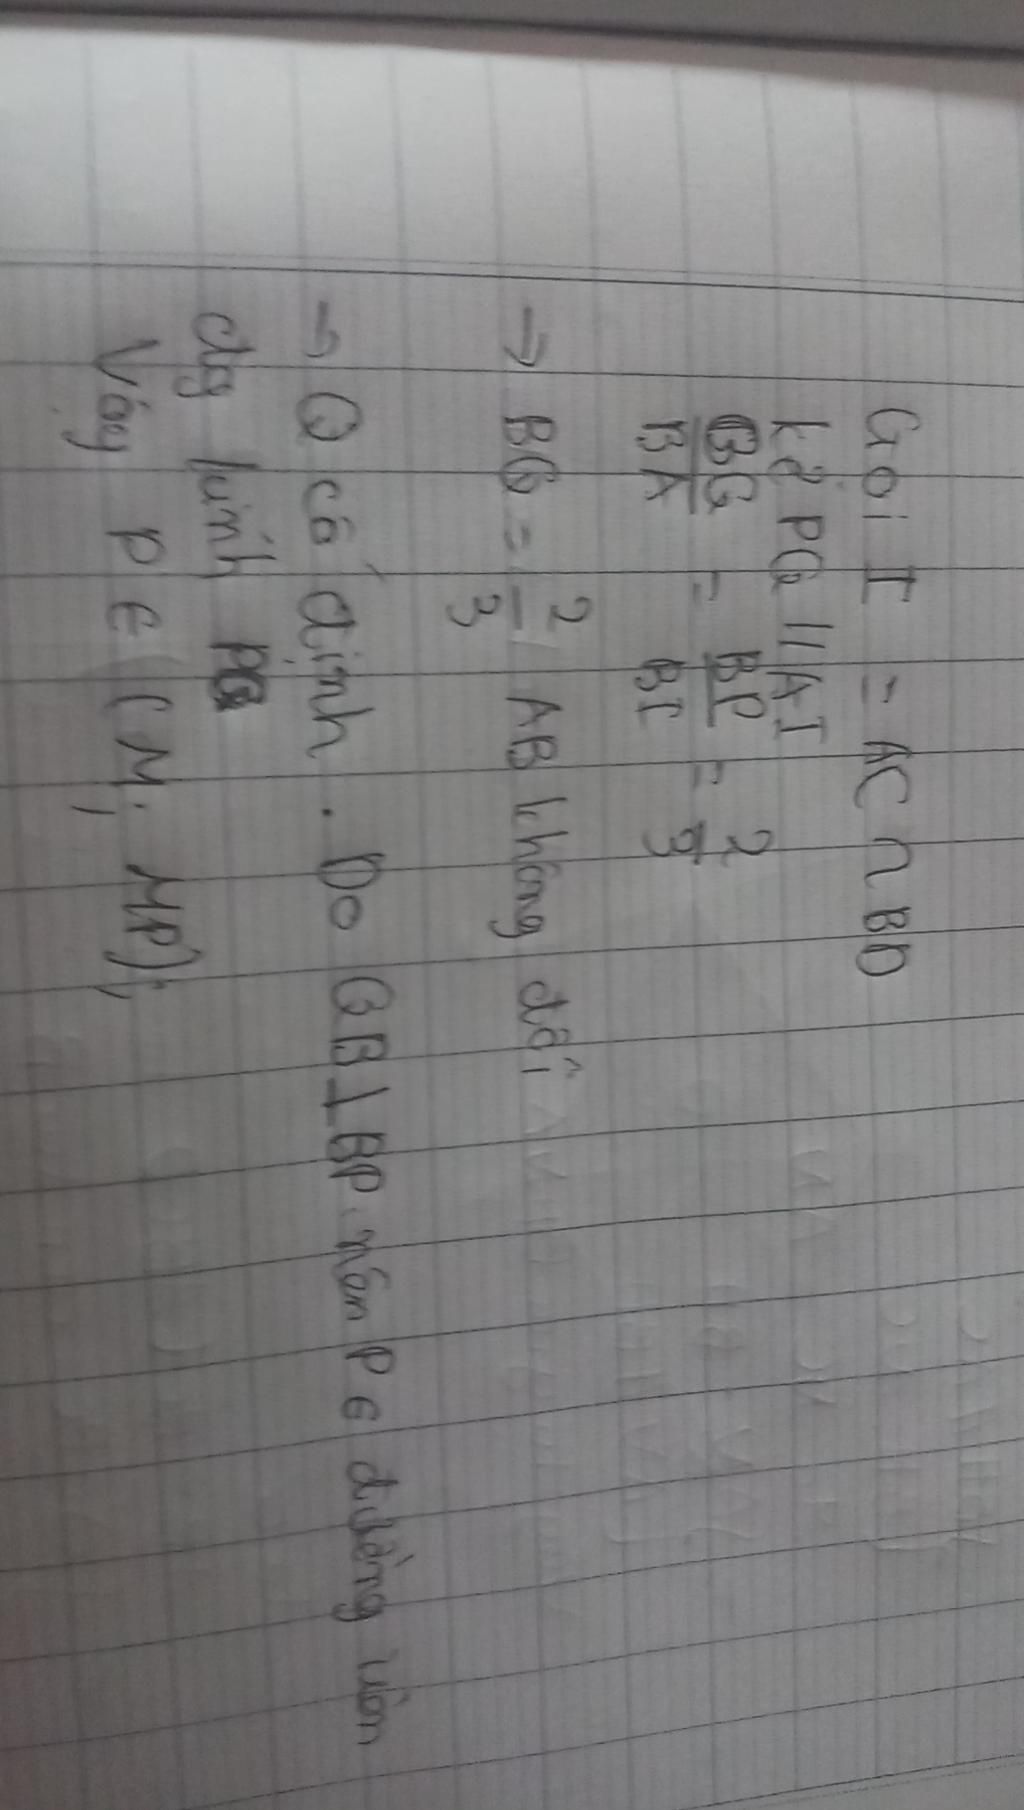 Gọi I = AC ∩ BD
kẻ PQ // AI
BQ/BA = BP/BI = 2/3
→ BQ = 2/3 AB không đổi
→ Q cố định. Do QB ⊥ BP nên P ∈ đường tròn
đg kính PQ
Vậy P ∈ (M; MP);